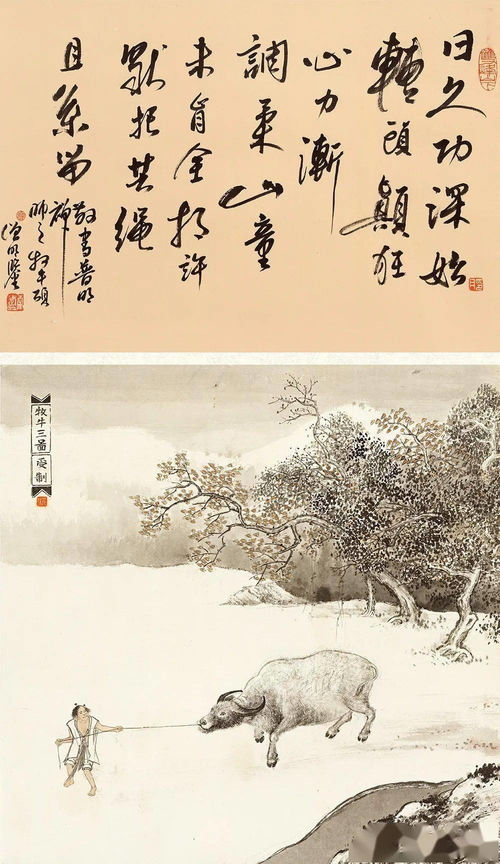 日久功深始
轉頭顛狂
心力漸
調柔山童
未肯全相許
猶把芒繩
且系留
敬書普明
禪
師之牧牛頌
牧牛三圖
受制